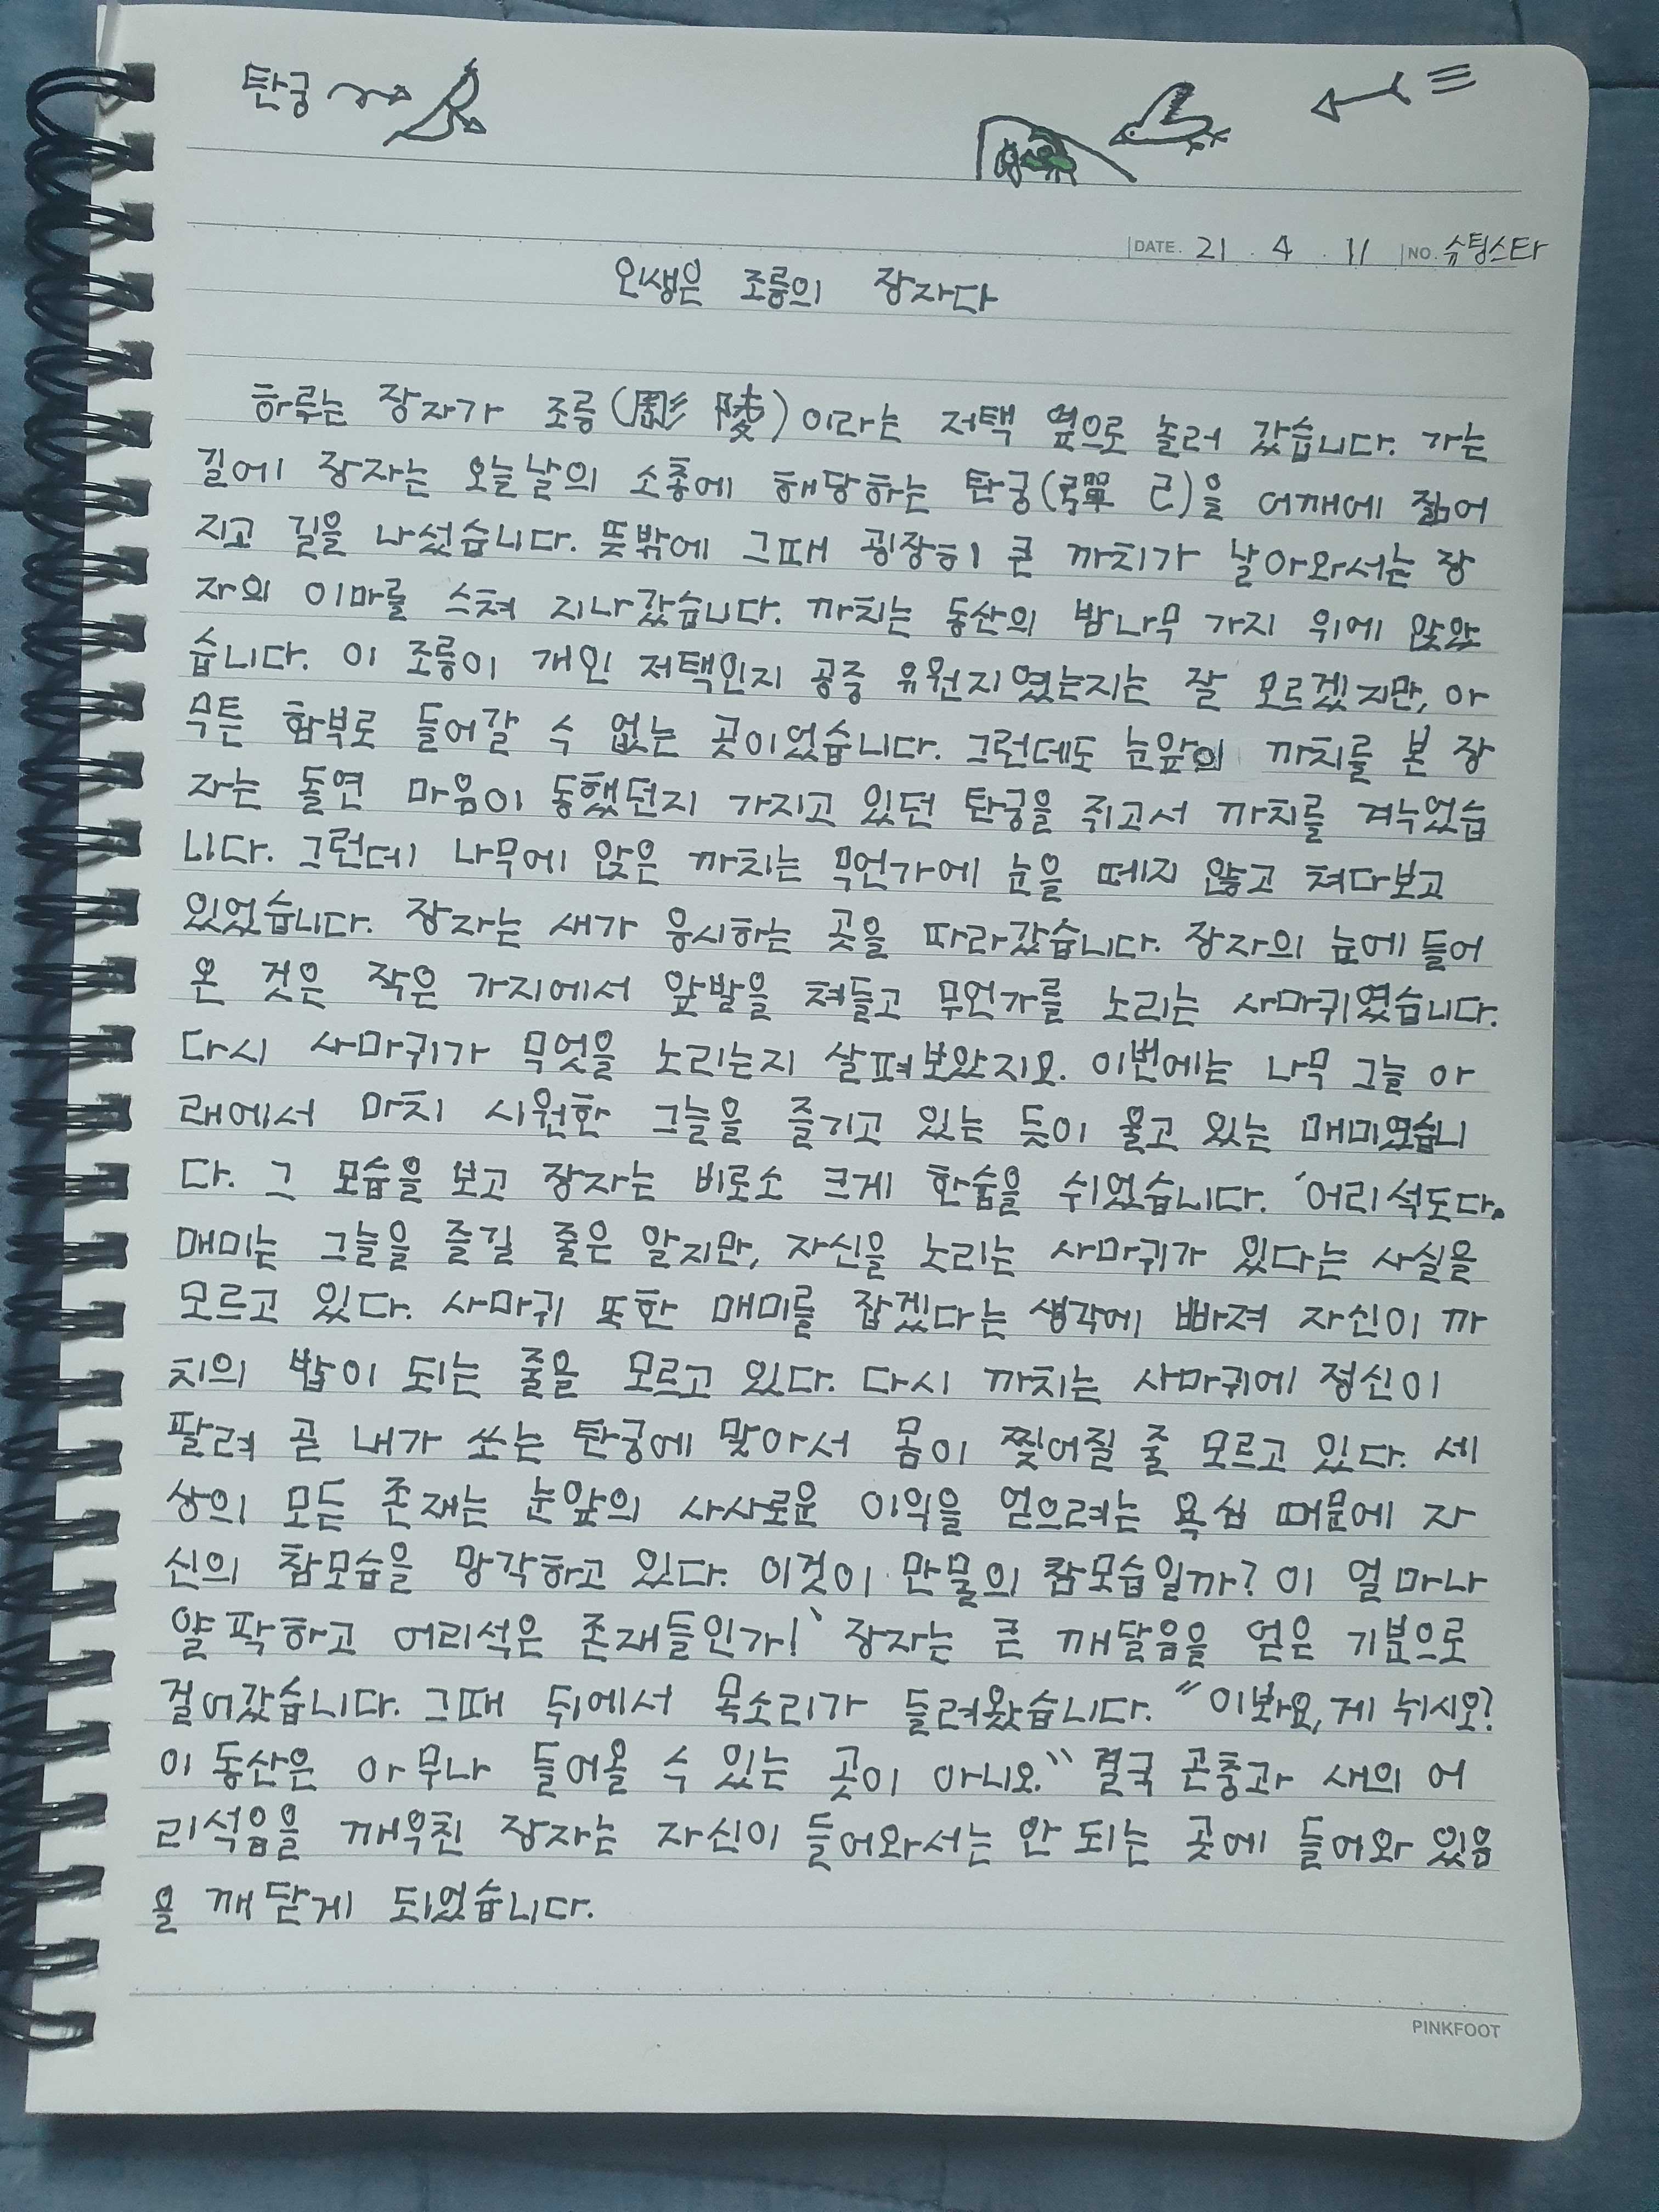 탄궁
DATE. 21 . 4 . 11 NO. 슈팅스타
인생은 조릉의 장자다
하루는 장자가 조릉(周彡 陵)이라는 저택 옆으로 놀러 갔습니다. 가는
길에 장자는 오늘날의 소총에 해당하는 탄궁(彈 己)을 어깨에 짊어
지고 길을 나섰습니다. 뜻밖에 그때 굉장히 큰 까치가 날아와서는 장
자의 이마를 스쳐 지나갔습니다. 까치는 동산의 밤나무 가지 위에 앉았
습니다. 이 조릉이 개인 저택인지 공중 유원지였는지는 잘 모르겠지만, 아
무튼 함부로 들어갈 수 없는 곳이었습니다. 그런데도 눈앞의 까치를 본 장
자는 돌연 마음이 동했던지 가지고 있던 탄궁을 쥐고서 까치를 겨누었습
니다. 그런데 나무에 앉은 까치는 무언가에 눈을 떼지 않고 쳐다보고
있었습니다. 장자는 새가 응시하는 곳을 따라갔습니다. 장자의 눈에 들어
온 것은 작은 가지에서 앞발을 쳐들고 무언가를 노리는 사마귀였습니다.
다시 사마귀가 무엇을 노리는지 살펴보았지요. 이번에는 나무 그늘 아
래에서 마치 시원한 그늘을 즐기고 있는 듯이 울고 있는 매미였습니
다. 그 모습을 보고 장자는 비로소 크게 한숨을 쉬었습니다. '어리석도다.
매미는 그늘을 즐길 줄은 알지만, 자신을 노리는 사마귀가 있다는 사실을
모르고 있다. 사마귀 또한 매미를 잡겠다는 생각에 빠져 자신이 까
치의 밥이 되는 줄을 모르고 있다. 다시 까치는 사마귀에 정신이
팔려 곧 내가 쏘는 탄궁에 맞아서 몸이 찢어질 줄 모르고 있다. 세
상의 모든 존재는 눈앞의 사사로운 이익을 얻으려는 욕심 때문에 자
신의 참모습을 망각하고 있다. 이것이 만물의 참모습일까? 이 얼마나
얄팍하고 어리석은 존재들인가!' 장자는 큰 깨달음을 얻은 기분으로
걸어갔습니다. 그때 뒤에서 목소리가 들려왔습니다. "이봐요, 게 뉘시오?
이 동산은 아무나 들어올 수 있는 곳이 아니오." 결국 곤충과 새의 어
리석음을 깨우친 장자는 자신이 들어와서는 안 되는 곳에 들어와 있음
을 깨닫게 되었습니다.
PINKFOOT